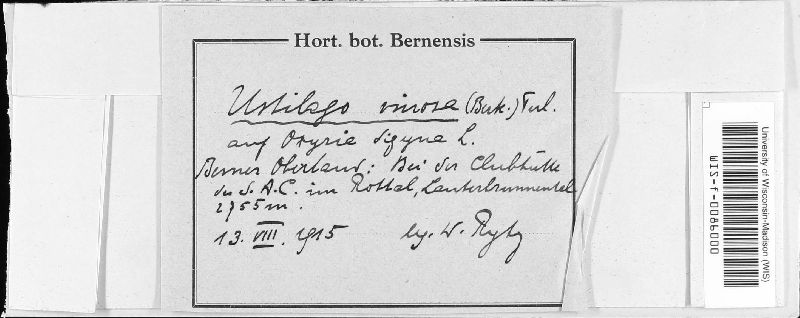 Hort. bot. Bernensis
Ustilago vinosa (Berk.) Tul.
auf Oxyria digyna L.
Berner Oberland: Bei der Clubhütte
des S. A. C. im Rottal, Lauterbrunnental.
2755 m.
13. VIII. 1915 leg. W. Rytz
University of Wisconsin-Madison (WIS)
WIS-f-0086000